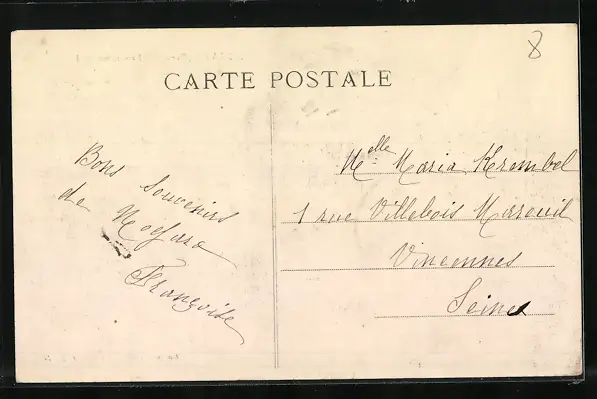 8
CARTE POSTALE
Bons Souvenirs
de
Françoise
Melle Maria Krembel
1 rue Villebois Mareuil
Vincennes
Seine